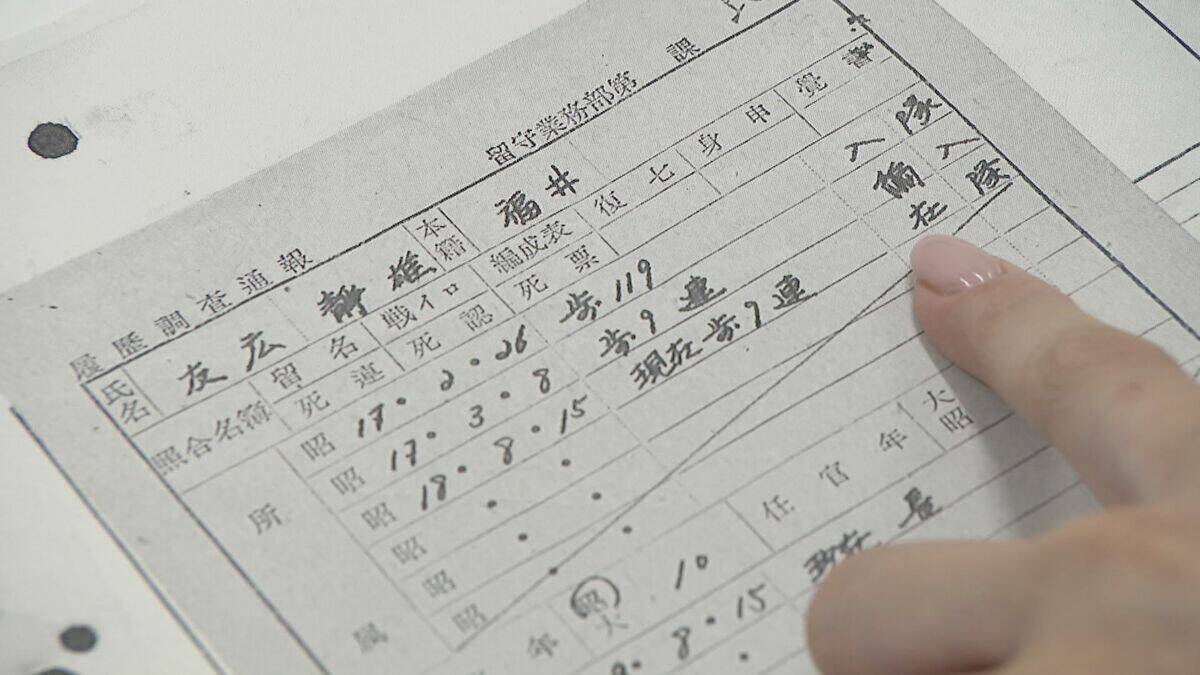 留守業務部第 課
履歴調査通報
氏名 友広 静雄 本籍 福井
照合名簿 留名 戦イロ 編成表 復七 身申 覚書
死連 死認 死票
所属
昭 17・2・26 歩119 入隊
昭 17・3・8 歩9連 入隊
昭 18・8・15 現在歩9連 在隊
昭 ・ ・
昭 ・ ・
昭 ・ ・
年 昭大 10 任官年 大昭
8・15 現在